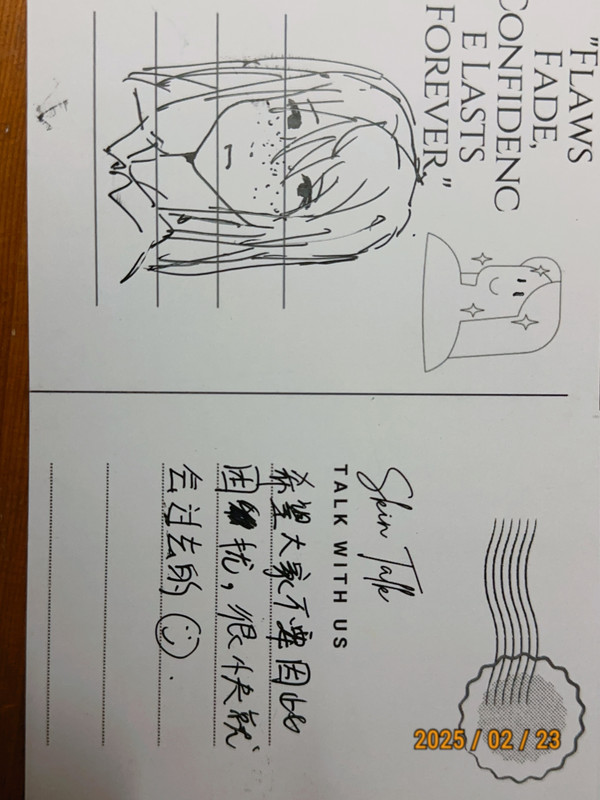 "FLAWS
FADE,
CONFIDENC
E LASTS
FOREVER."
Skin Talk
TALK WITH US
希望大家不要因此
困扰，很快就
会过去的
2025 / 02 / 23